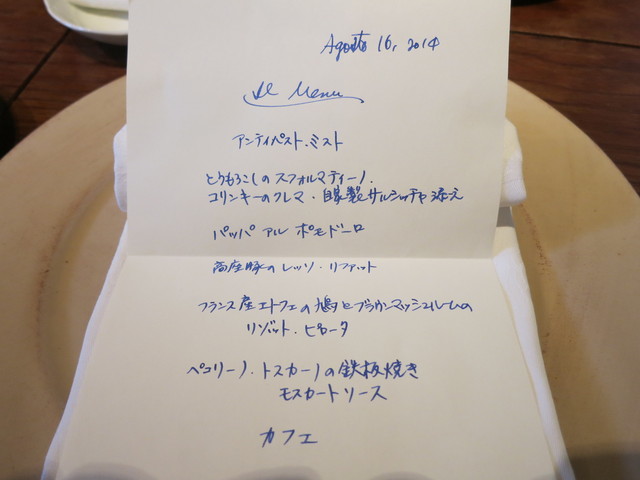 Agosto 16, 2014
Il Menu
アンティパスト・ミスト
とうもろこしのスフォルマティーノ.
コリンキーのクレマ・自家製サルシッチャ添え
パッパ アル ポモドーロ
高座豚のレッソ・リファット
フランス産エトフェの鳩とブラウンマッシュルームの
リゾット・ピロータ
ペコリーノ・トスカーノの鉄板焼き
モスカートソース
カフェ